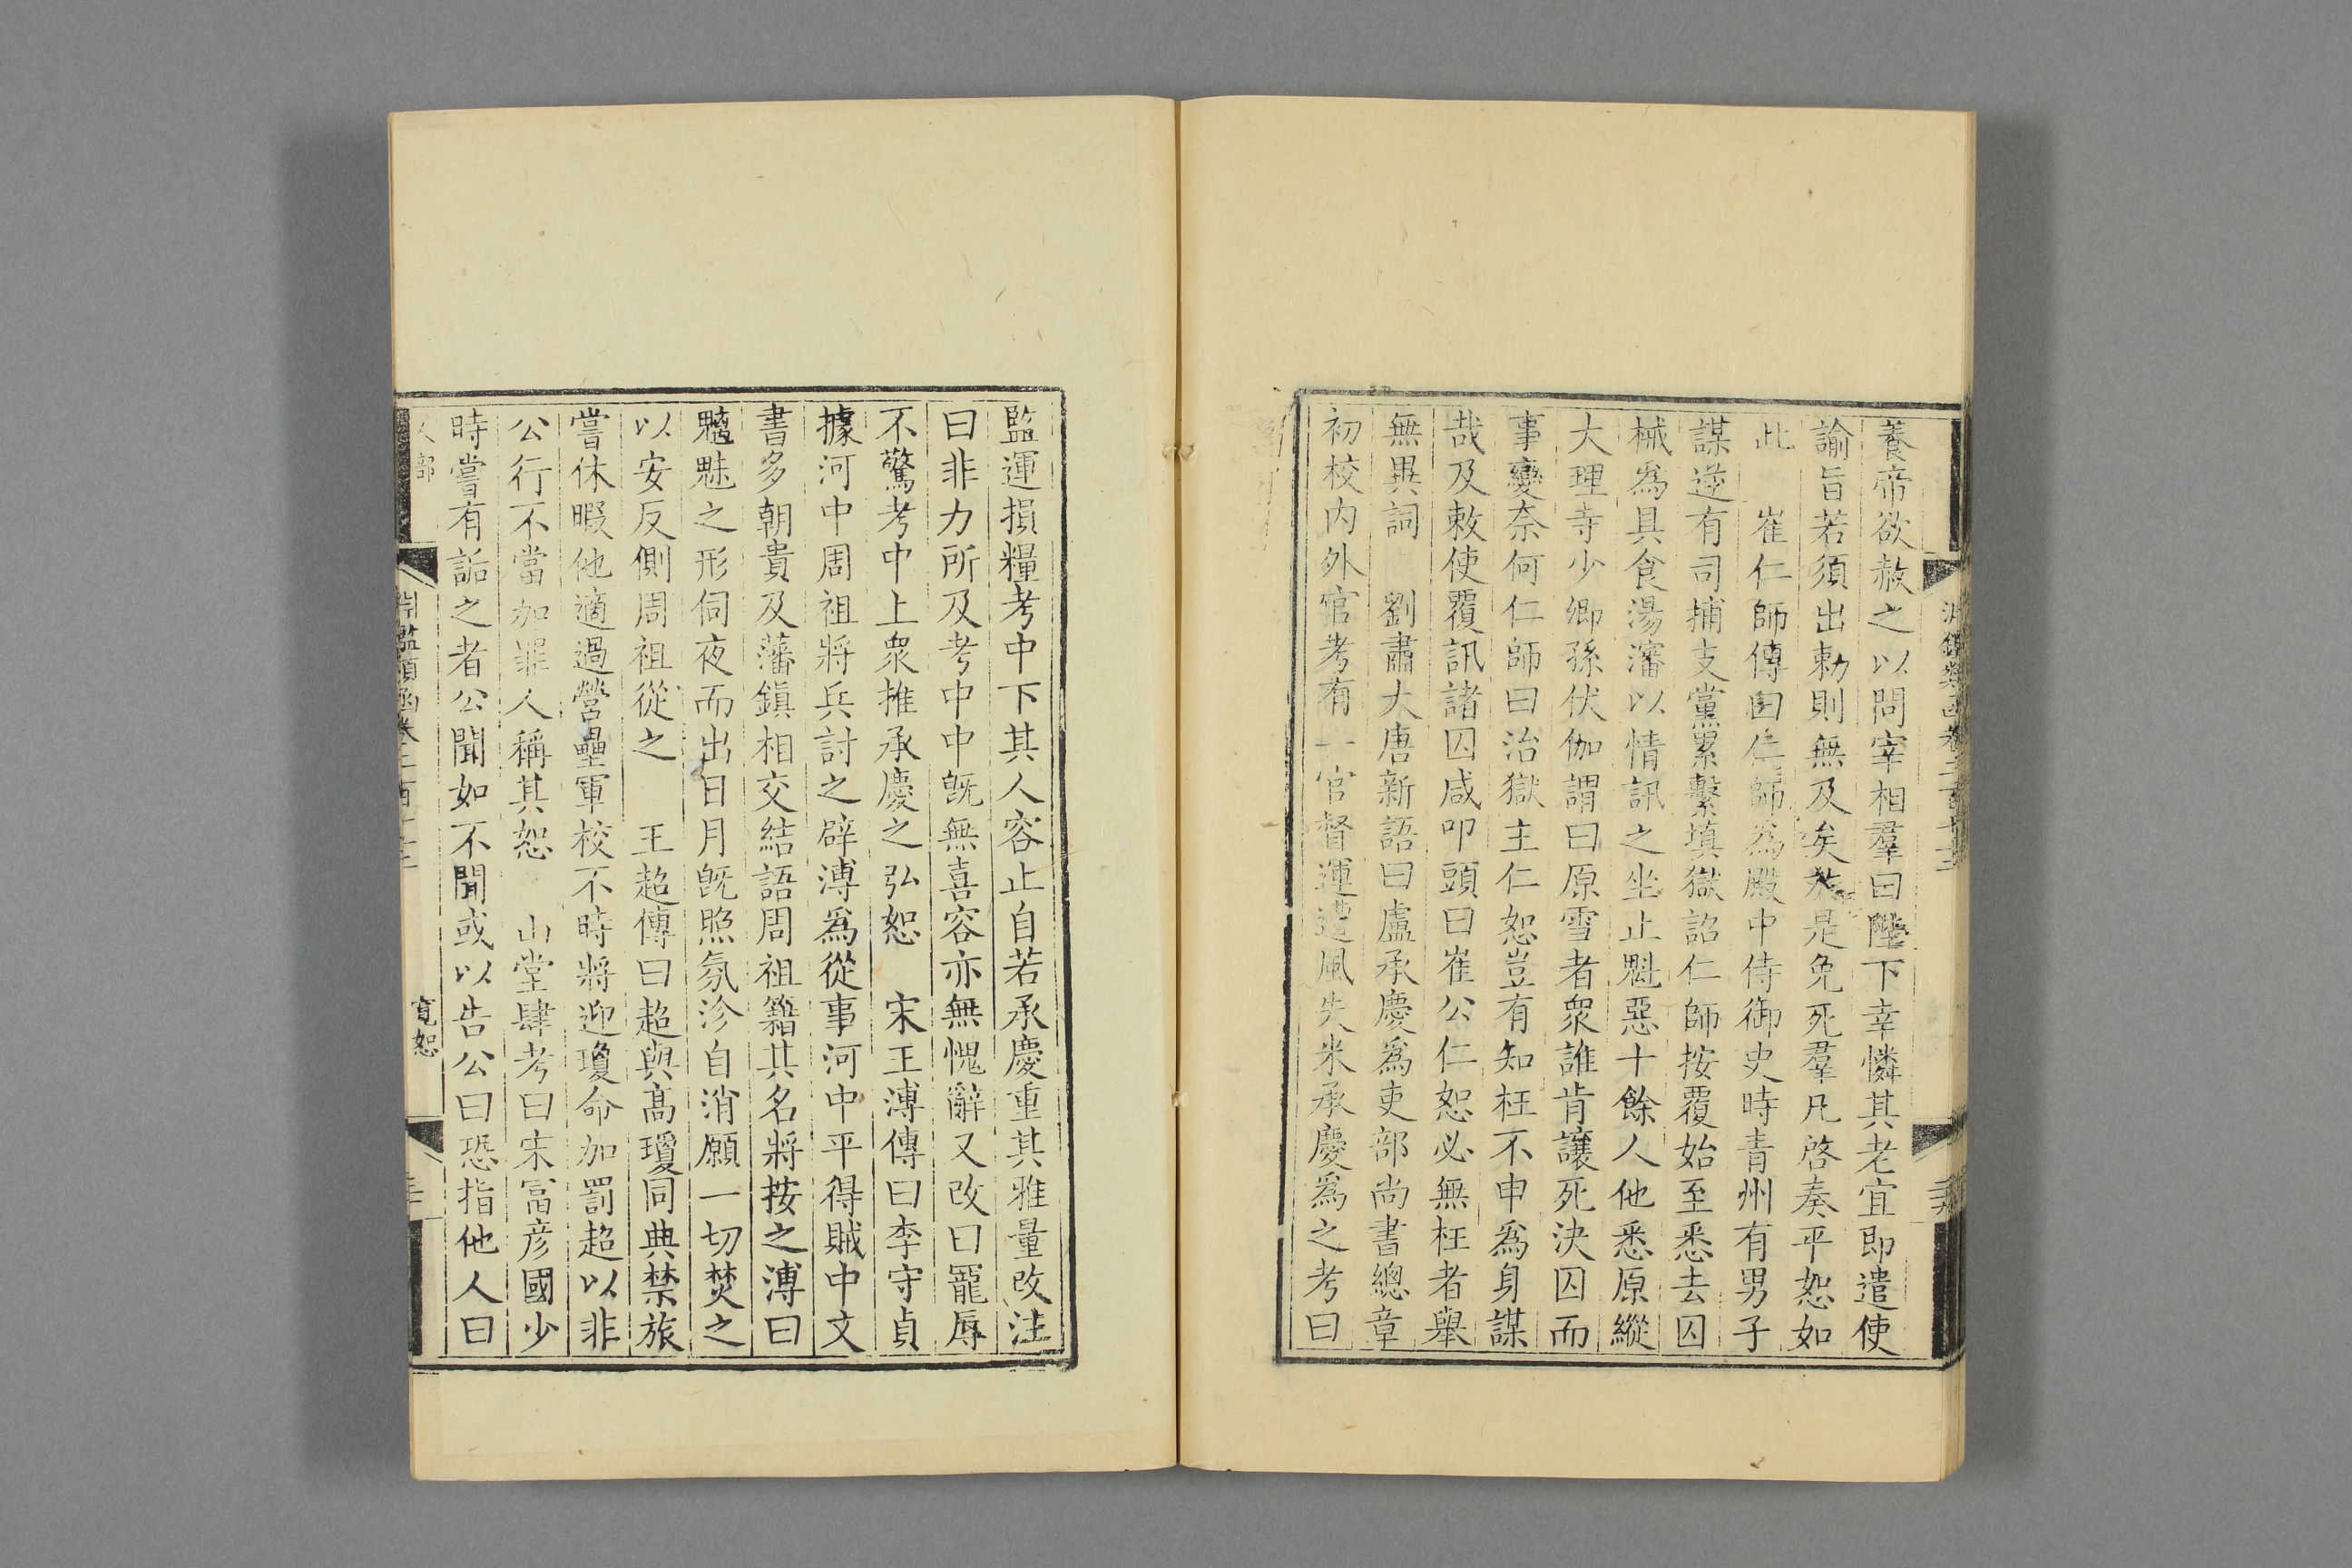 養帝欲赦之以問宰相羣曰陛下幸憐其老宜即遣使
諭旨若須出勅則無及矣於是免死羣凡啓奏平恕如
此　崔仁師傳曰仁師爲殿中侍御史時青州有男子
謀逆有司捕支黨累繫填獄詔仁師按覆始至悉去囚
械爲具食湯瀋以情訊之坐止魁惡十餘人他悉原縱
大理寺少卿孫伏伽謂曰原雪者衆誰肯讓死決囚而
事變奈何仁師曰治獄主仁恕豈有知枉不申爲身謀
哉及敕使覆訊諸囚咸叩頭曰崔公仁恕必無枉者舉
無異詞　劉肅大唐新語曰盧承慶爲吏部尚書總章
初校內外官考有一官督運遭風失米承慶爲之考曰
監運損糧考中下其人容止自若承慶重其雅量改注
曰非力所及考中中旣無喜容亦無愧辭又改曰寵辱
不驚考中上衆推承慶之弘恕　宋王溥傳曰李守貞
據河中周祖將兵討之辟溥爲從事河中平得賊中文
書多朝貴及藩鎭相交結語周祖籍其名將按之溥曰
魑魅之形伺夜而出日月旣照氛沴自消願一切焚之
以安反側周祖從之　王超傳曰超與高瓊同典禁旅
嘗休暇他適過營壘軍校不時將迎瓊命加罰超以非
公行不當加罪人稱其恕　山堂肆考曰宋富彥國少
時嘗有詬之者公聞如不聞或以告公曰恐指他人曰
人部
淵鑑類函卷二百
寬恕